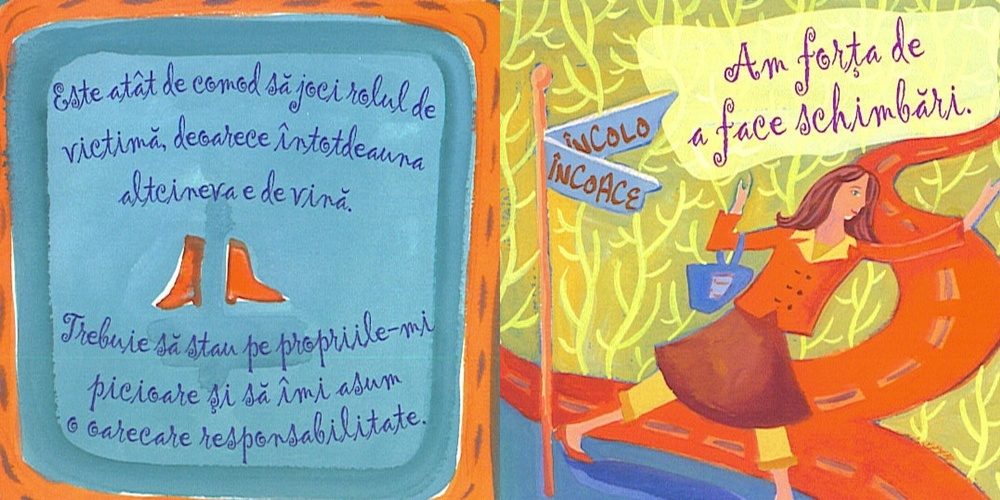 Este atât de comod să joci rolul de
victimă, deoarece întotdeauna
altcineva e de vină.
Trebuie să stau pe propriile-mi
picioare şi să îmi asum
o oarecare responsabilitate.
Am forţa de
a face schimbări.
ÎNCOLO
ÎNCOACE